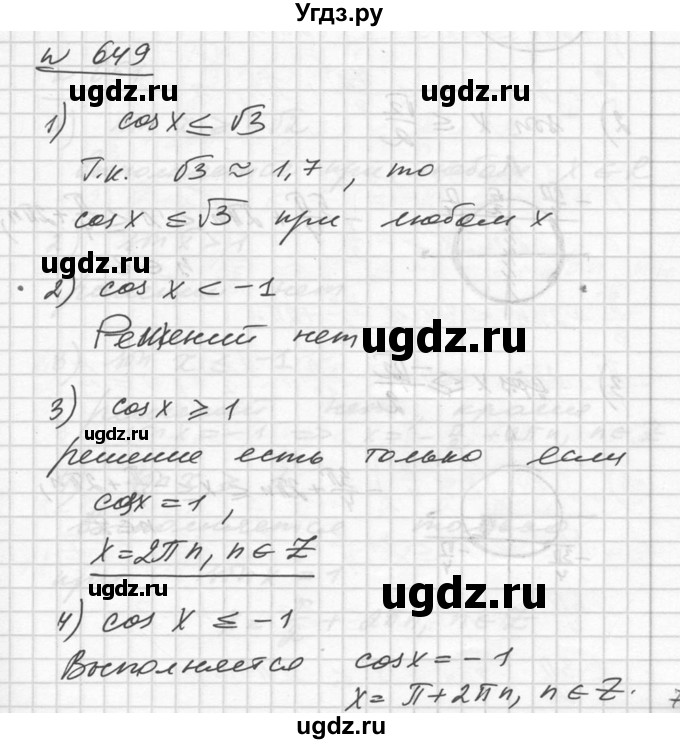 Угдз.ру
№ 649
ugdz.ru
1) cos x ≤ √3
Т.к. √3 ≈ 1,7, то
cos x ≤ √3 при любом x
ugdz.ru
2) cos x < -1
Решений нет
ugdz.ru
3) cos x ≥ 1
ugdz.ru
решение есть только если
cos x = 1,
x = 2πn, n ∈ Z
ugdz.ru
ugdz.ru
4) cos x ≤ -1
Выполняется cos x = -1
x = π + 2πn, n ∈ Z.
ugdz.ru